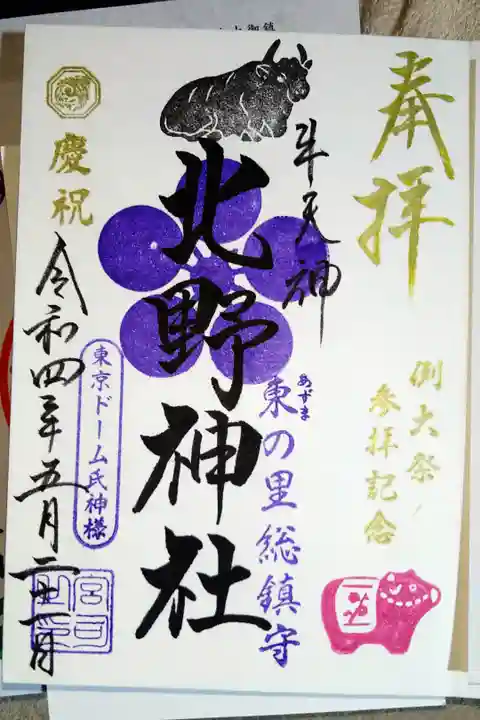 奉拝
例大祭
参拝記念
牛天神
東の里総鎮守
あずま
北野神社
慶祝
東京ドーム氏神様
令和四年五月二十一日